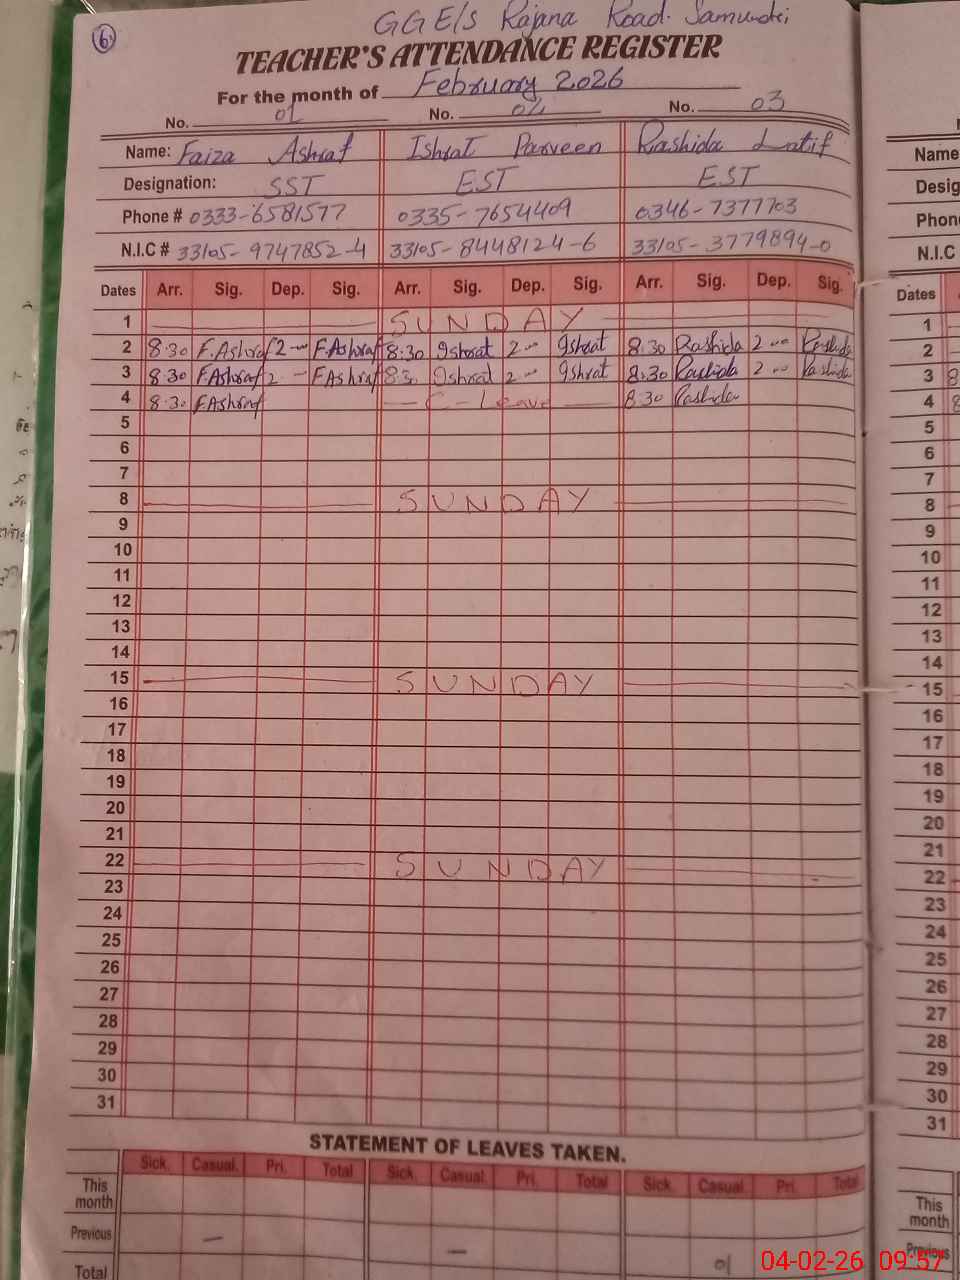 6
GGE/S Rajana Road. Samundri
TEACHER'S ATTENDANCE REGISTER
For the month of February 2026
No. 01 No. 02 No. 03
Name: Faiza Ashraf Ishrat Parveen Rashida Latif
Designation: SST EST EST
Phone # 0333-6581577 0335-7654409 0346-7377703
N.I.C # 33105-9747852-4 33105-8448124-6 33105-3779894-0
Dates Arr. Sig. Dep. Sig. Arr. Sig. Dep. Sig. Arr. Sig. Dep. Sig.
1 SUNDAY
2 8:30 F.Ashraf 2 — F.Ashraf 8:30 Ishrat 2 — Ishrat 8:30 Rashida 2 — Rashida
3 8:30 F.Ashraf 2 — F.Ashraf 8:3 Ishrat 2 — Ishrat 8:30 Rashida 2 — Rashida
4 8:30 F.Ashraf — C-Leave — 8:30 Rashida
5
6
7
8 SUNDAY
9
10
11
12
13
14
15 SUNDAY
16
17
18
19
20
21
22 SUNDAY
23
24
25
26
27
28
29
30
31
STATEMENT OF LEAVES TAKEN.
Sick. Casual. Pri. Total Sick. Casual. Pri. Total Sick. Casual. Pri. Total
This month
Previous — — 01
Total
Name
Desig
Phon
N.I.C
Dates
1
2
3 8
4 8
5
6
7
8
9
10
11
12
13
14
15
16
17
18
19
20
21
22
23
24
25
26
27
28
29
30
31
This month
Previous
04-02-26 09:57